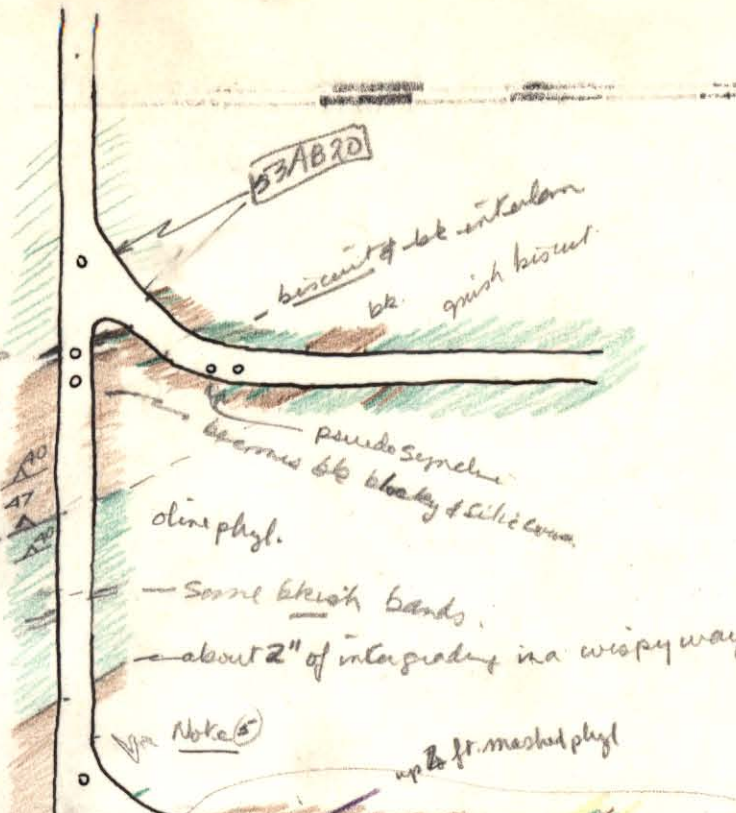 53AB20
biscuit & bk interlam
bk. gnish biscuit
pseudosyncline
becomes bk blocky & siliceous
40
47
40
olive phyl.
— Some bkish bands.
— about 2" of intergrading in a wispy way
Note 5
up 2 ft. mashed phyl